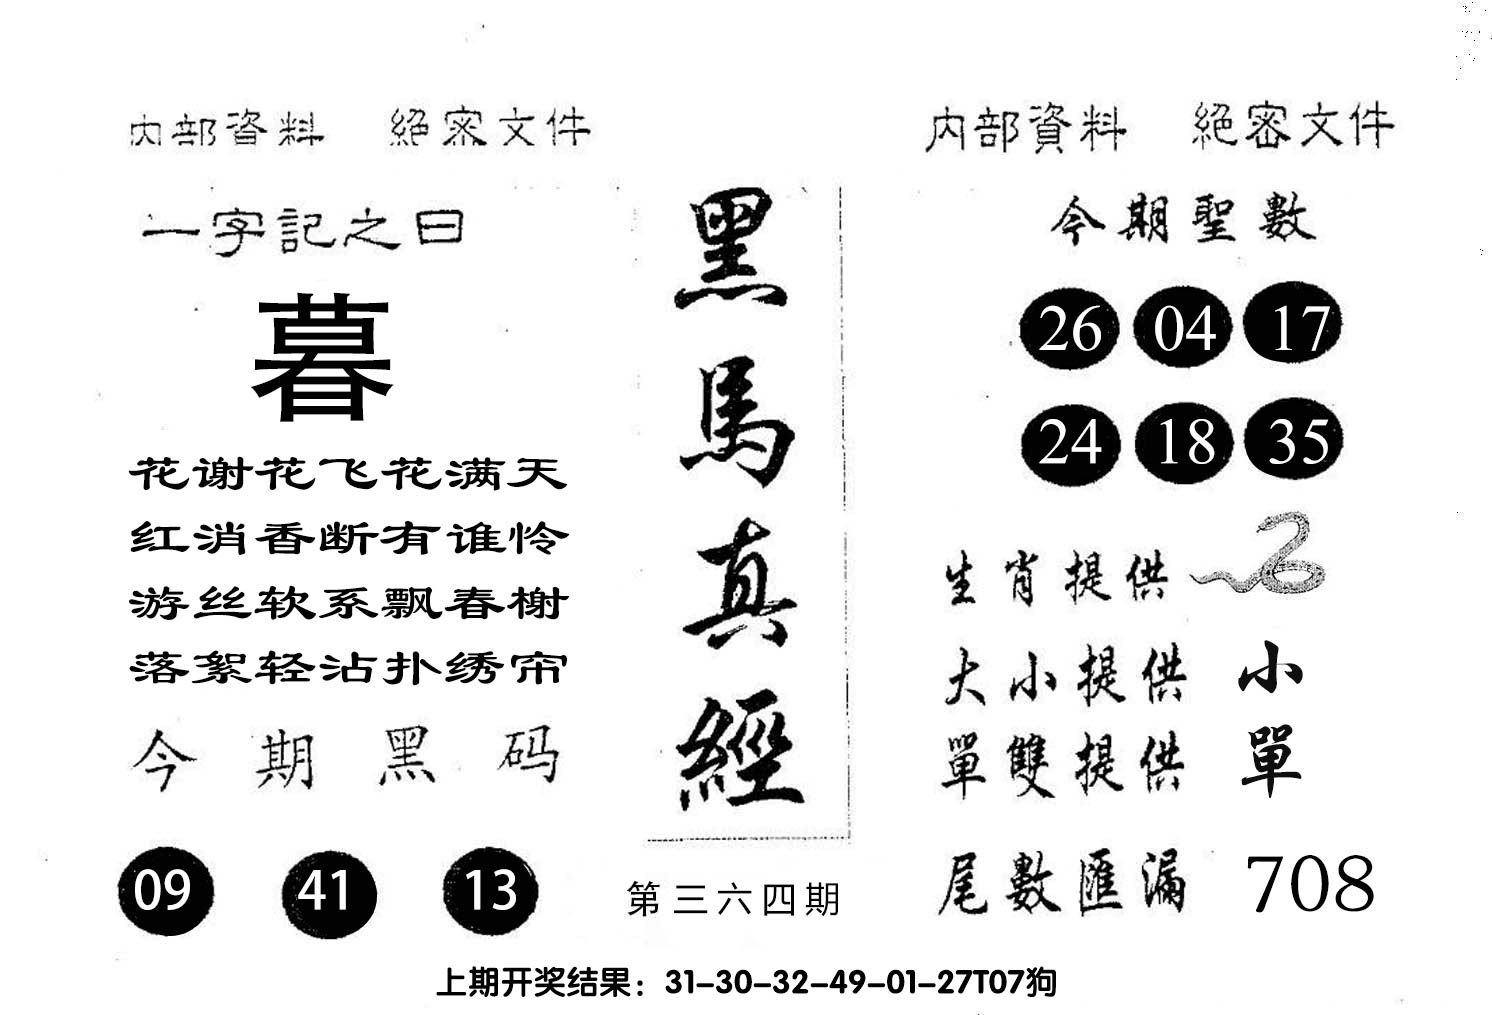 内部資料 絕密文件
一字記之曰
暮
花谢花飞花满天
红消香断有谁怜
游丝软系飘春榭
落絮轻沾扑绣帘
今期黑码
09 41 13
黑馬真經
第三六四期
内部資料 絕密文件
今期聖數
26 04 17
24 18 35
生肖提供
大小提供 小
單雙提供 單
尾數匯漏 708
上期开奖结果：31-30-32-49-01-27T07狗